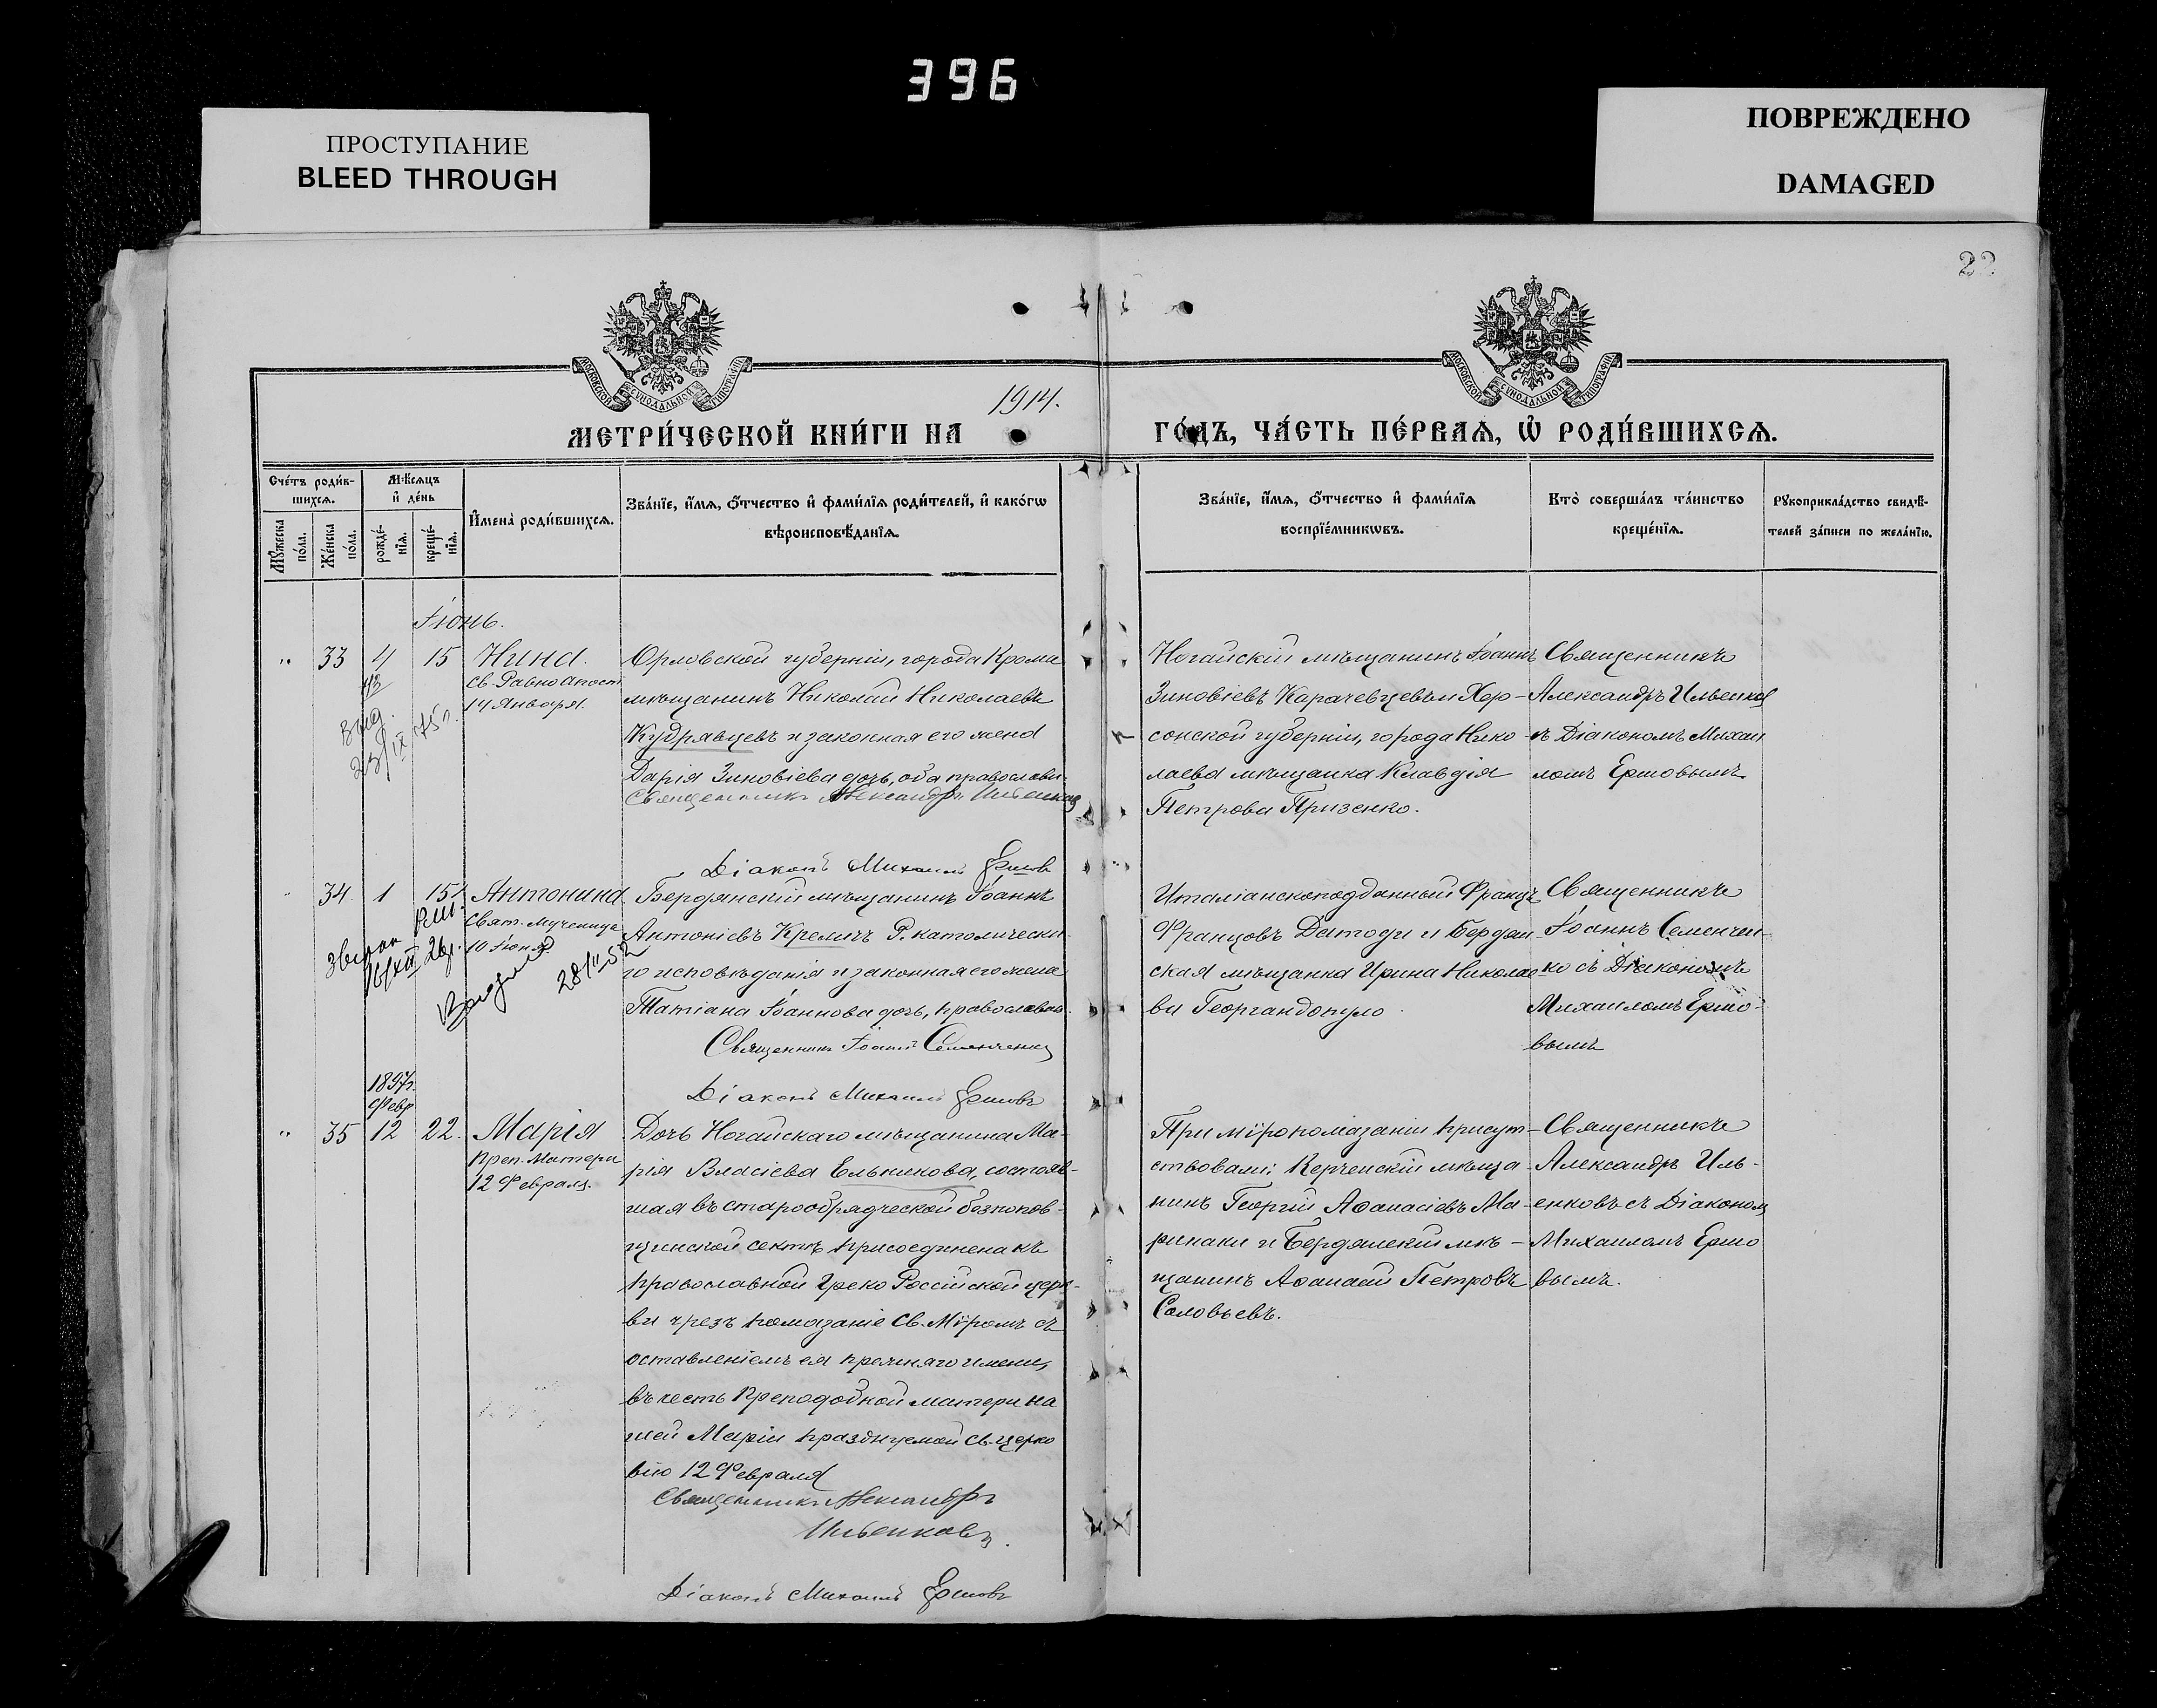 396
ПРОСТУПАНИЕ
BLEED THROUGH
ПОВРЕЖДЕНО
DAMAGED
22
МОСКОВСКОЙ СѴНОДАЛЬНОЙ ТИПОГРАФІИ
МОСКОВСКОЙ СѴНОДАЛЬНОЙ ТИПОГРАФІИ
1914.
МЕТРИ́ЧЕСКОЙ КНИ́ГИ НА
ГО́ДЪ, ЧА́СТЬ ПЕ́РВАѦ, Ѡ РОДИ́ВШИХСѦ.
Сче́тъ роди́в-
шихсѧ.
Мѣ́сѧцъ
и҆ де́нь
Мꙋ́жеска
по́ла.
Же́нска
по́ла.
рожде́-
нїѧ.
креще́-
нїѧ.
И҆мена̀ роди́вшихсѧ.
Зва́нїе, и҆́мѧ, ѻ҆́тчество и҆ фами́лїѧ роди́телей, и҆ како́гѡ
вѣроисповѣ́данїѧ.
Зва́нїе, и҆́мѧ, ѻ҆́тчество и҆ фами́лїѧ
воспрїе́мникѡвъ.
Кто̀ соверша́лъ та́инство
креще́нїѧ.
Рꙋкоприкла́дство свидѣ́-
телей за́писи по жела́нїю.
Іюнь.
" 33 4 15 Нина.
Св. Равноапост.
14 Января.
Орловской губерніи, города Кромы
мѣщанинъ Николай Николаевъ
Кудрявцевъ и законная его жена
Дарія Зиновіева дочь, оба православн.
Священникъ Александръ Ильенковъ
Діаконъ Михаилъ Ершовъ
Ногайскій мѣщанинъ Іоаннъ
Зиновіевъ Карачевцевъ и Хер-
сонской губерніи, города Нико-
лаева мѣщанка Клавдія
Петрова Призенко.
Священникъ
Александръ Ильенков
съ Діакономъ Михаи
ломъ Ершовымъ.
" 34. 1 15 Антонина
Свят. Мученица
10 Іюня
28/II 52
Бердянскій мѣщанинъ Іоаннъ
Антоніевъ Кремичъ Р. католическа-
го исповѣданія и законная его жена
Татіана Іоаннова дочь, православн.
Священникъ Іоаннъ Семенченко
Діаконъ Михаилъ Ершовъ
Италіанскоподданный Францъ
Францовъ Датоди и Бердян-
ская мѣщанка Ирина Николае-
ва Георгандопуло
Священникъ
Іоаннъ Семенчен-
ко съ Діакономъ
Михаиломъ Ершо-
вымъ
1897г.
Февр
" 35 12 22. Марія
Преп. Матери
12 Февраля.
Дочь Ногайскаго мѣщанина Ма-
рія Власіева Елькинова, состояв-
шая въ старообрядческой безпопов-
щинской сектѣ присоединена къ
православной Греко Россійской церк-
ви чрезъ помазаніе Св. Мѵромъ съ
оставленіемъ ея прежняго имени,
въ честь Преподобной матери на
шей Маріи празднуемой Св. церко
вію 12 Февраля
Священникъ Александръ
Ильенковъ.
Діаконъ Михаилъ Ершовъ
При мѵропомазаніи присут-
ствовали: Керченскій мѣща-
нинъ Георгій Аѳанасіевъ Ма-
ринаки и Бердянскій мѣ-
щанинъ Аѳанасій Петровъ
Соловьевъ.
Священникъ
Александръ Иль-
енковъ съ Діаконом
Михаиломъ Ершо
вымъ.